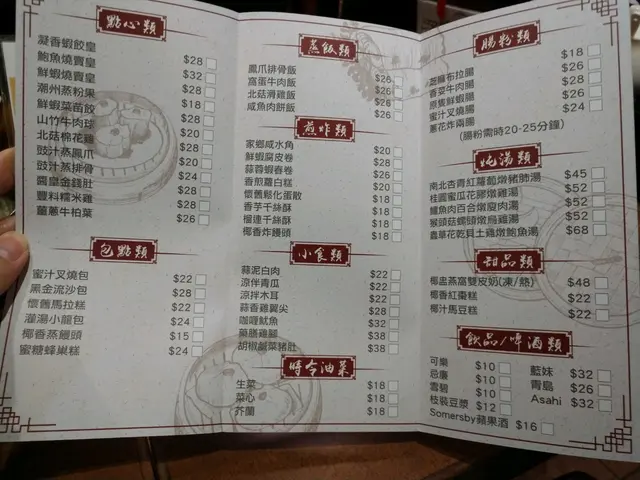 點心類
凝香蝦餃皇 $28
鮑魚燒賣皇 $32
鮮蝦燒賣皇 $28
潮州蒸粉果 $18
鮮蝦菜苗餃 $28
山竹牛肉球 $20
北菇棉花雞 $28
豉汁蒸鳳爪 $20
豉汁蒸排骨 $24
醬皇金錢肚 $28
豐料糯米雞 $28
蘿蔔牛柏葉 $26
包點類
蜜汁叉燒包 $22
黑金流沙包 $28
懷舊馬拉糕 $22
灌湯小籠包 $24
椰香蒸饅頭 $15
蜜糖蜂巢糕 $24
蒸飯類
鳳爪排骨飯 $26
窩蛋牛肉飯 $26
北菇滑雞飯 $26
咸魚肉餅飯 $26
煎炸類
家鄉咸水角 $20
鮮蝦腐皮卷 $28
蒜蓉蝦春卷 $28
香煎蘿白糕 $20
懷舊鬆化蛋散 $18
香芋千絲酥 $18
榴槤千絲酥 $18
椰香炸饅頭 $18
小食類
蒜泥白肉 $22
涼拌青瓜 $22
涼拌木耳 $22
蒜香雞翼尖 $28
咖喱魷魚 $32
藥膳雞腳 $38
胡椒鹹菜豬肚 $38
時令油菜
生菜 $18
菜心 $18
芥蘭 $18
腸粉類
芝麻布拉腸 $18
香菜牛肉腸 $26
原隻鮮蝦腸 $28
蜜汁叉燒腸 $26
蔥花炸兩腸 $24
(腸粉需時20-25分鐘)
炖湯類
南北杏青紅蘿蔔燉豬肺湯 $45
桂圓蜜瓜花膠燉雞湯 $52
鱷魚肉百合燉瘦肉湯 $52
猴頭菇螺頭燉烏雞湯 $52
蟲草花乾貝土雞燉鮑魚湯 $68
甜品類
椰盅燕窩雙皮奶(凍/熱) $48
椰香紅棗糕 $22
椰汁馬豆糕 $22
飲品/啤酒類
可樂 $10 藍妹 $32
忌廉 $10 青島 $26
雪碧 $10 Asahi $32
枝裝豆漿 $12
Somersby蘋果酒 $16